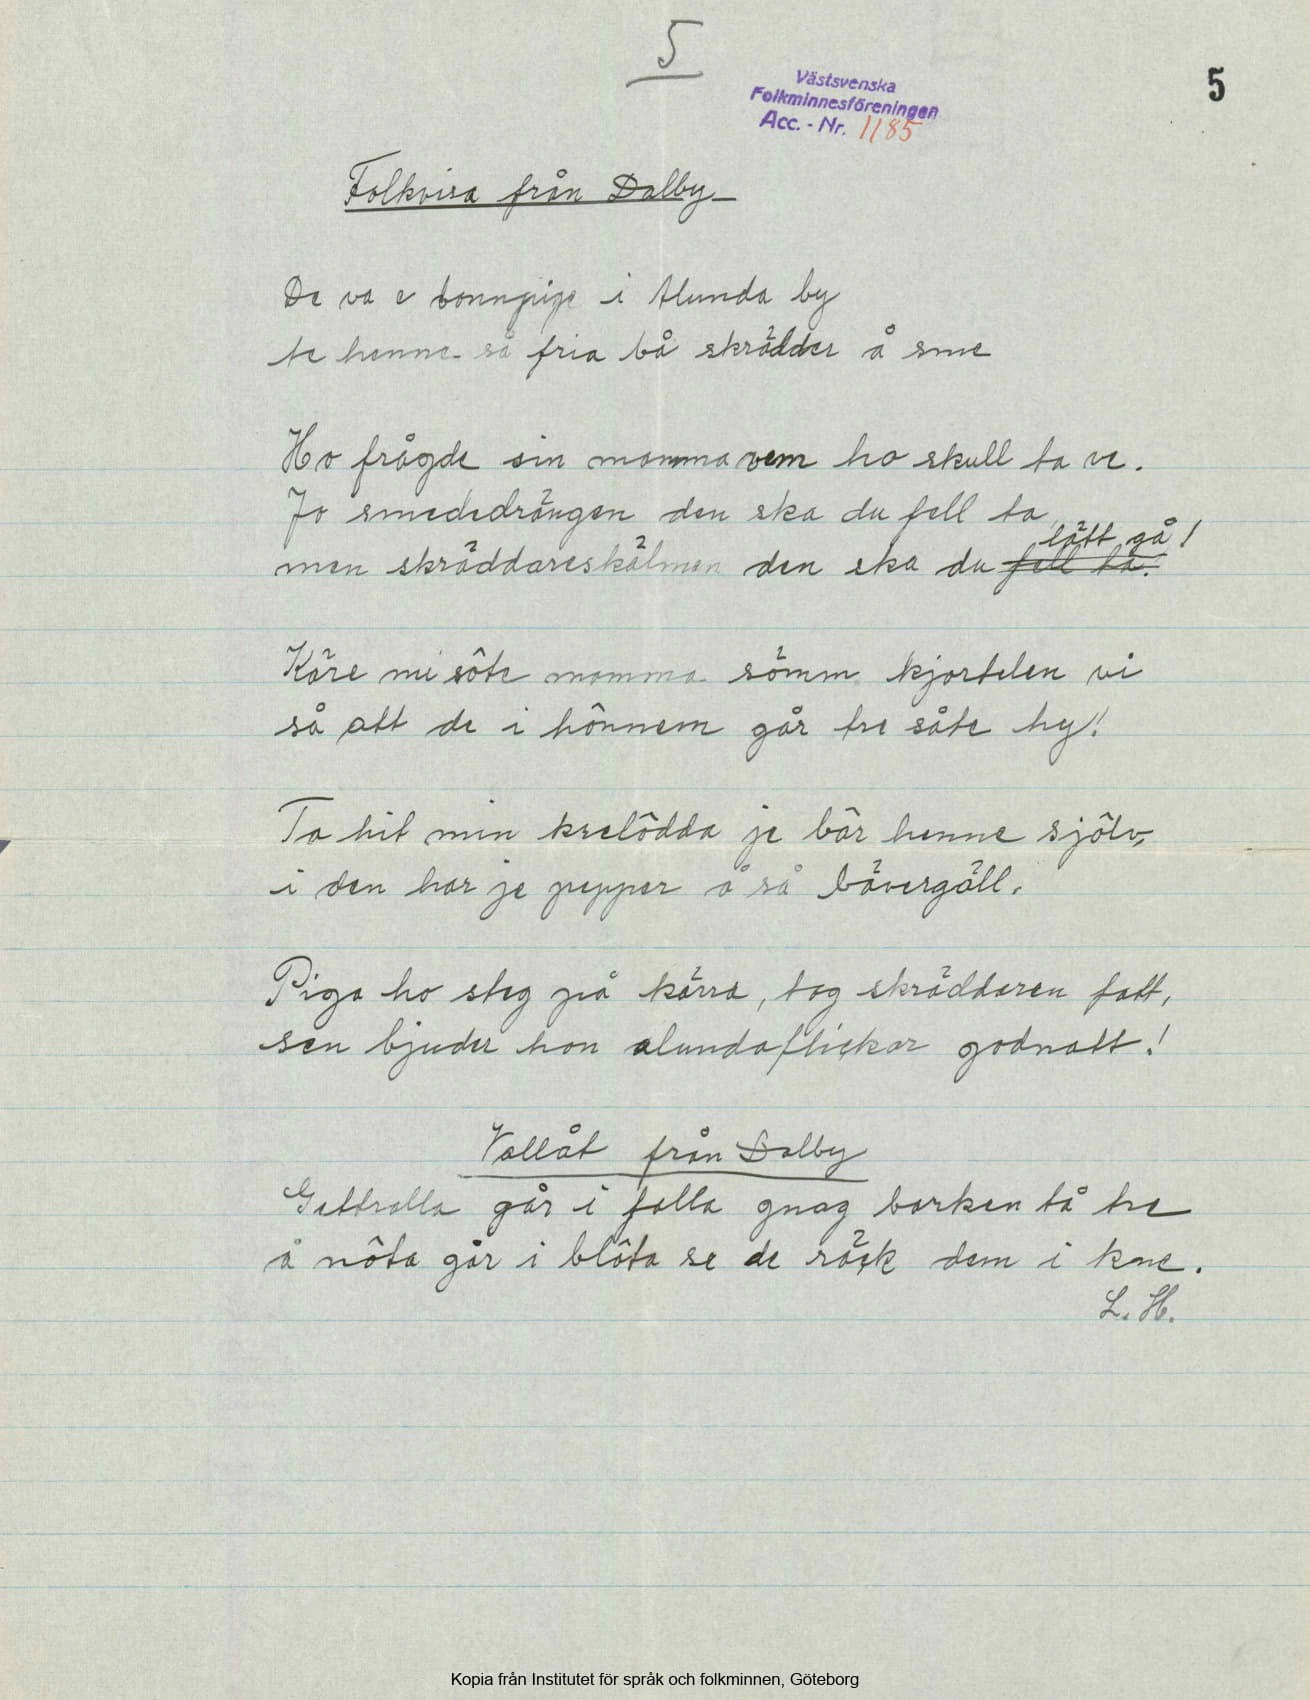 5
Västsvenska
Folkminnesföreningen
Acc. - Nr. 1185
5
Folkvisa från Dalby
De va e bonnpige i Alunda by
te henne så fria bå skrädder å sme
Ho frågde sin mamma vem ho skull ta ve.
Jo smededrängen den ska du fell ta
lätt gå!
men skräddareskälmen den ska du fell ta.
Käre mi sôte mamma sömm kjortelen vi
så att de i hônnem går tre såte hy!
Ta hit min krelôdda je bär henne sjôlv,
i den har je pepper å så bävergäll.
Piga ho steg på kärra, tog skräddaren fatt,
sen bjuder hon alundaflickor godnatt!
Vallåt från Dalby
Gettralla går i falla gnag barken tå tre
å nôta går i blôta se de räck dem i kne.
L. H.
Kopia från Institutet för språk och folkminnen, Göteborg